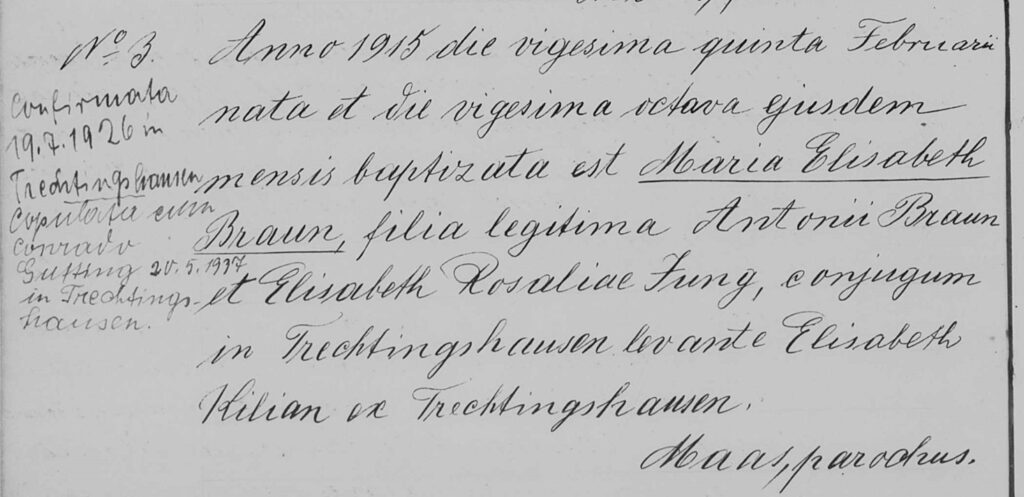 No 3.
Anno 1915 die vigesima quinta Februarii
nata et die vigesima octava ejusdem
mensis baptizata est Maria Elisabeth
Braun, filia legitima Antonii Braun
et Elisabeth Rosaliae Jung, conjugum
in Trechtingshausen levante Elisabeth
Kilian ex Trechtingshausen.
Maas, parochus.
Confirmata
19.7.1926 in
Trechtingshausen
Copulata cum
Conrado
Gutting 20.5.1937
in Trechtings-
hausen.